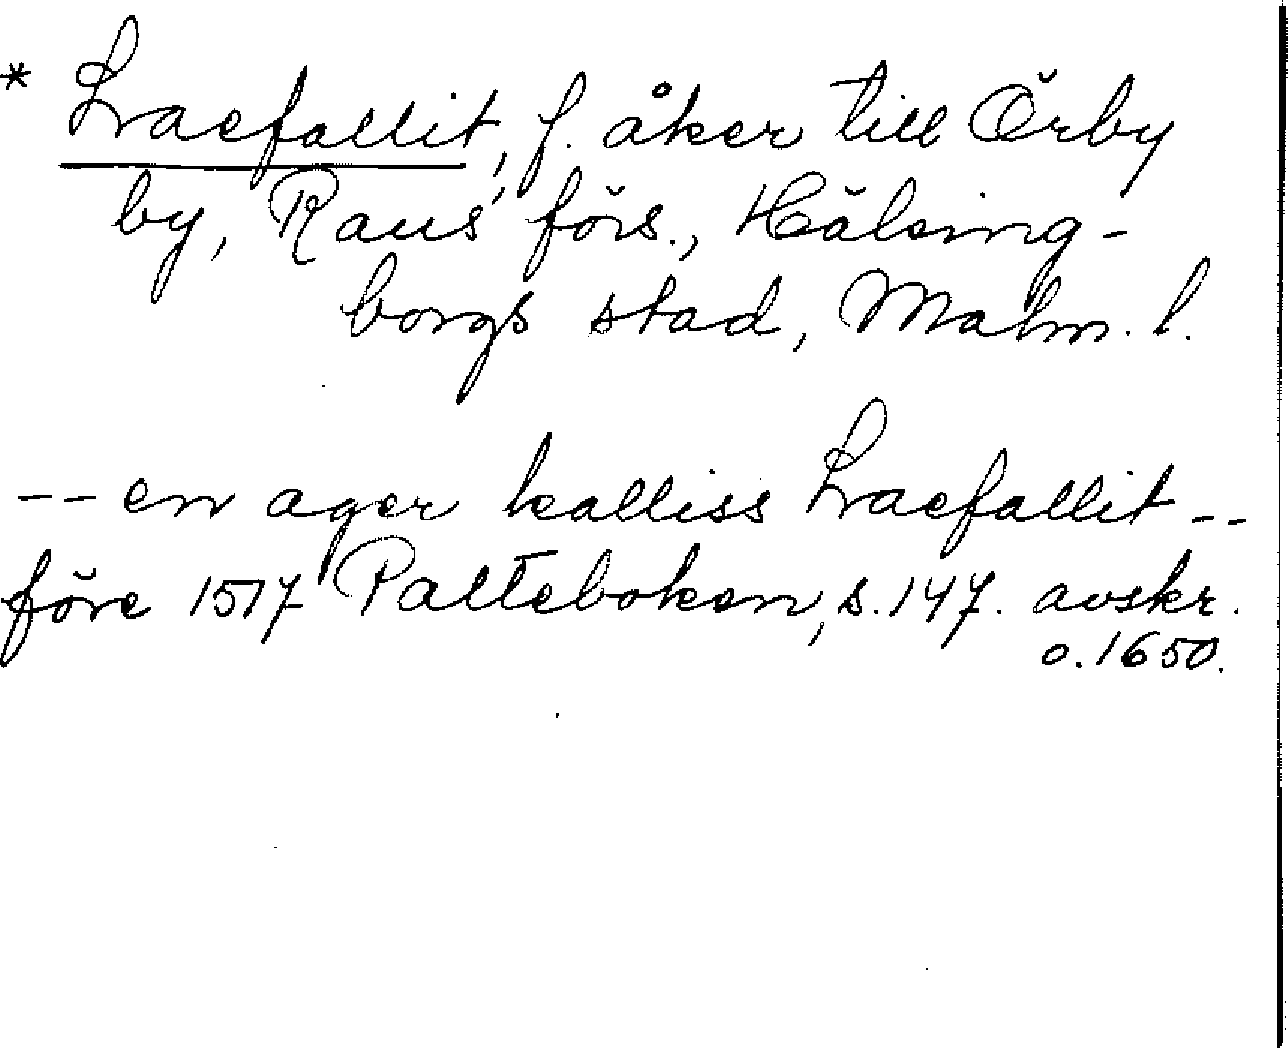 * Lraefallit, f. åker till Örby
by, Raus förs., Hälsing-
borgs stad, Malm. l.
-- en ager kalliss Lraefallit --
före 1517 Palteboken, s. 147. avskr.
o. 1650.